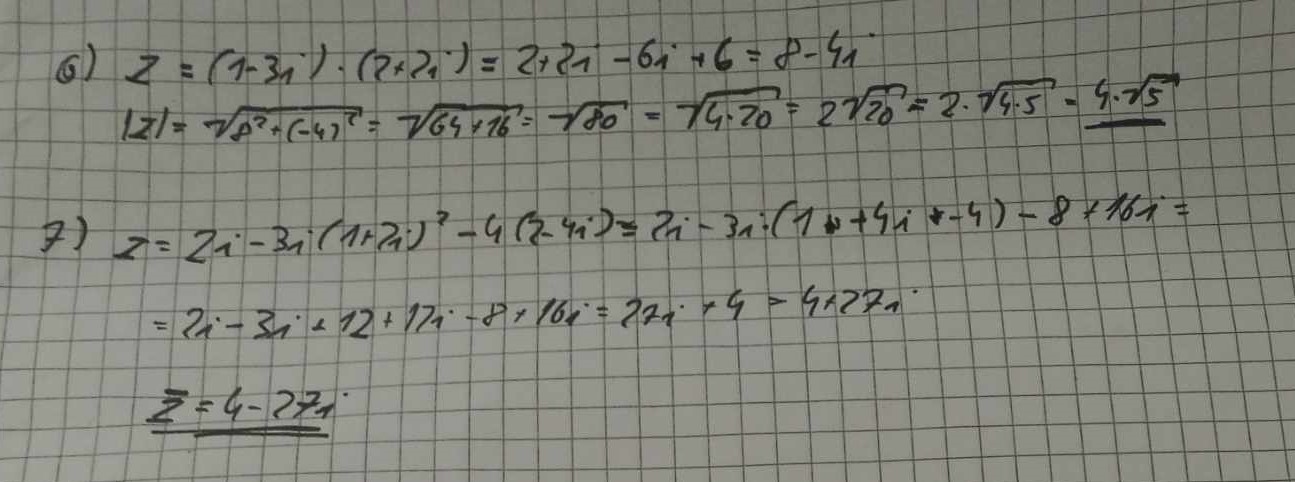 6) z = (1-3i)·(2+2i) = 2+2i-6i+6 = 8-4i
|z| = √(8²+(-4)²) = √(64+16) = √80 = √(4·20) = 2√20 = 2·√(4·5) = 4·√5
7) z = 2i-3i(1+2i)²-4(2-4i) = 2i-3i·(1+4i+-4)-8+16i =
= 2i-3i+12+12i-8+16i = 27i+4 = 4+27i
z̅ = 4-27i